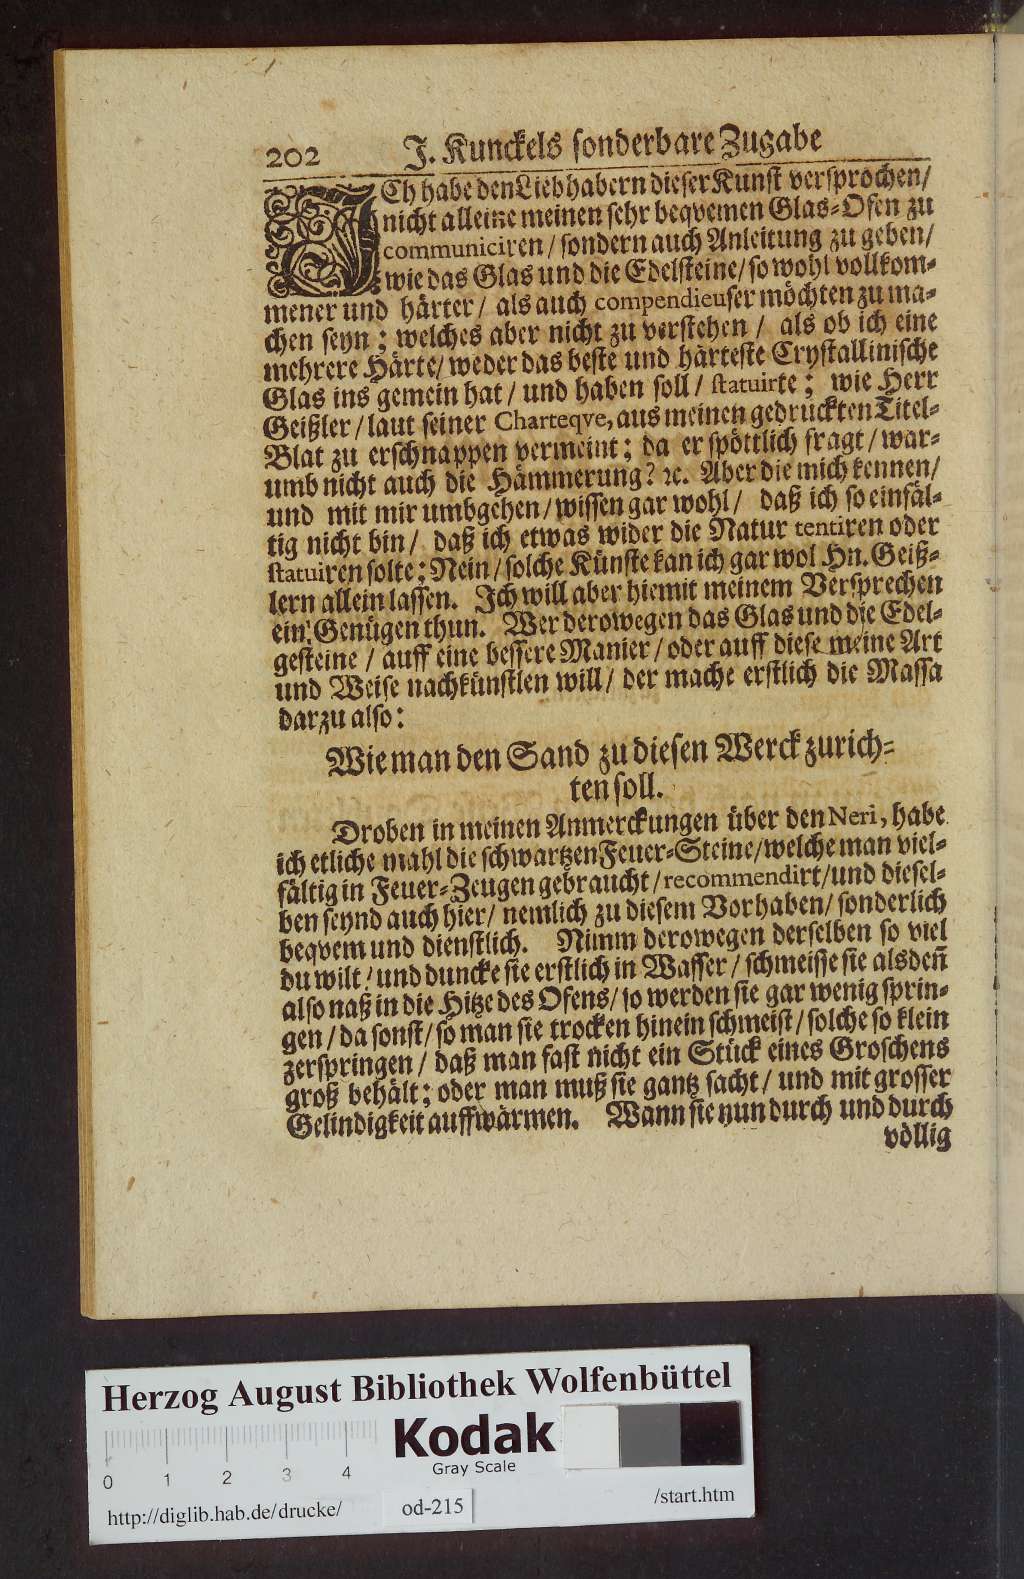 202 J. Kunckels sonderbare Zugabe
ICh habe den Liebhabern dieser Kunst versprochen/
nicht alleine meinen sehr beqvemen Glas-Ofen zu
communiciren/ sondern auch Anleitung zu geben/
wie das Glas und die Edelsteine/ so wohl vollkom-
mener und härter/ als auch compendieuser möchten zu ma-
chen seyn; welches aber nicht zu verstehen/ als ob ich eine
mehrere Härte/ weder das beste und härteste Crystallinische
Glas ins gemein hat/ und haben soll/ statuirte; wie Herr
Geißler/ laut seiner Charteqve, aus meinen gedruckten Titel-
Blat zu erschnappen vermeint; da er spöttlich fragt/ war-
umb nicht auch die Hämmerung? ꝛc. Aber die mich kennen/
und mit mir umbgehen/ wissen gar wohl/ daß ich so einfäl-
tig nicht bin/ daß ich etwas wider die Natur tentiren oder
statuiren solte; Nein/ solche Künste kan ich gar wol Hn. Geiß-
lern allein lassen. Ich will aber hiemit meinem Versprechen
ein Genügen thun. Wer derowegen das Glas und die Edel-
gesteine/ auff eine bessere Manier/ oder auff diese meine Art
und Weise nachkünstlen will/ der mache erstlich die Massa
darzu also:
Wie man den Sand zu diesen Werck zurich-
ten soll.
Droben in meinen Anmerckungen über den Neri, habe
ich etliche mahl die schwartzen Feuer-Steine/ welche man viel-
fältig in Feuer-Zeugen gebraucht/ recommendirt/ und diesel-
ben seynd auch hier/ nemlich zu diesem Vorhaben/ sonderlich
beqvem und dienstlich. Nimm derowegen derselben so viel
du wilt/ und duncke sie erstlich in Wasser/ schmeisse sie alsdeñ
also naß in die Hitze des Ofens/ so werden sie gar wenig sprin-
gen/ da sonst/ so man sie trocken hinein schmeist/ solche so klein
zerspringen/ daß man fast nicht ein Stück eines Groschens
groß behält; oder man muß sie gantz sacht/ und mit grosser
Gelindigkeit auffwärmen. Wann sie nun durch und durch
völlig
Herzog August Bibliothek Wolfenbüttel
Kodak
Gray Scale
0 1 2 3 4
http://diglib.hab.de/drucke/ od-215 /start.htm